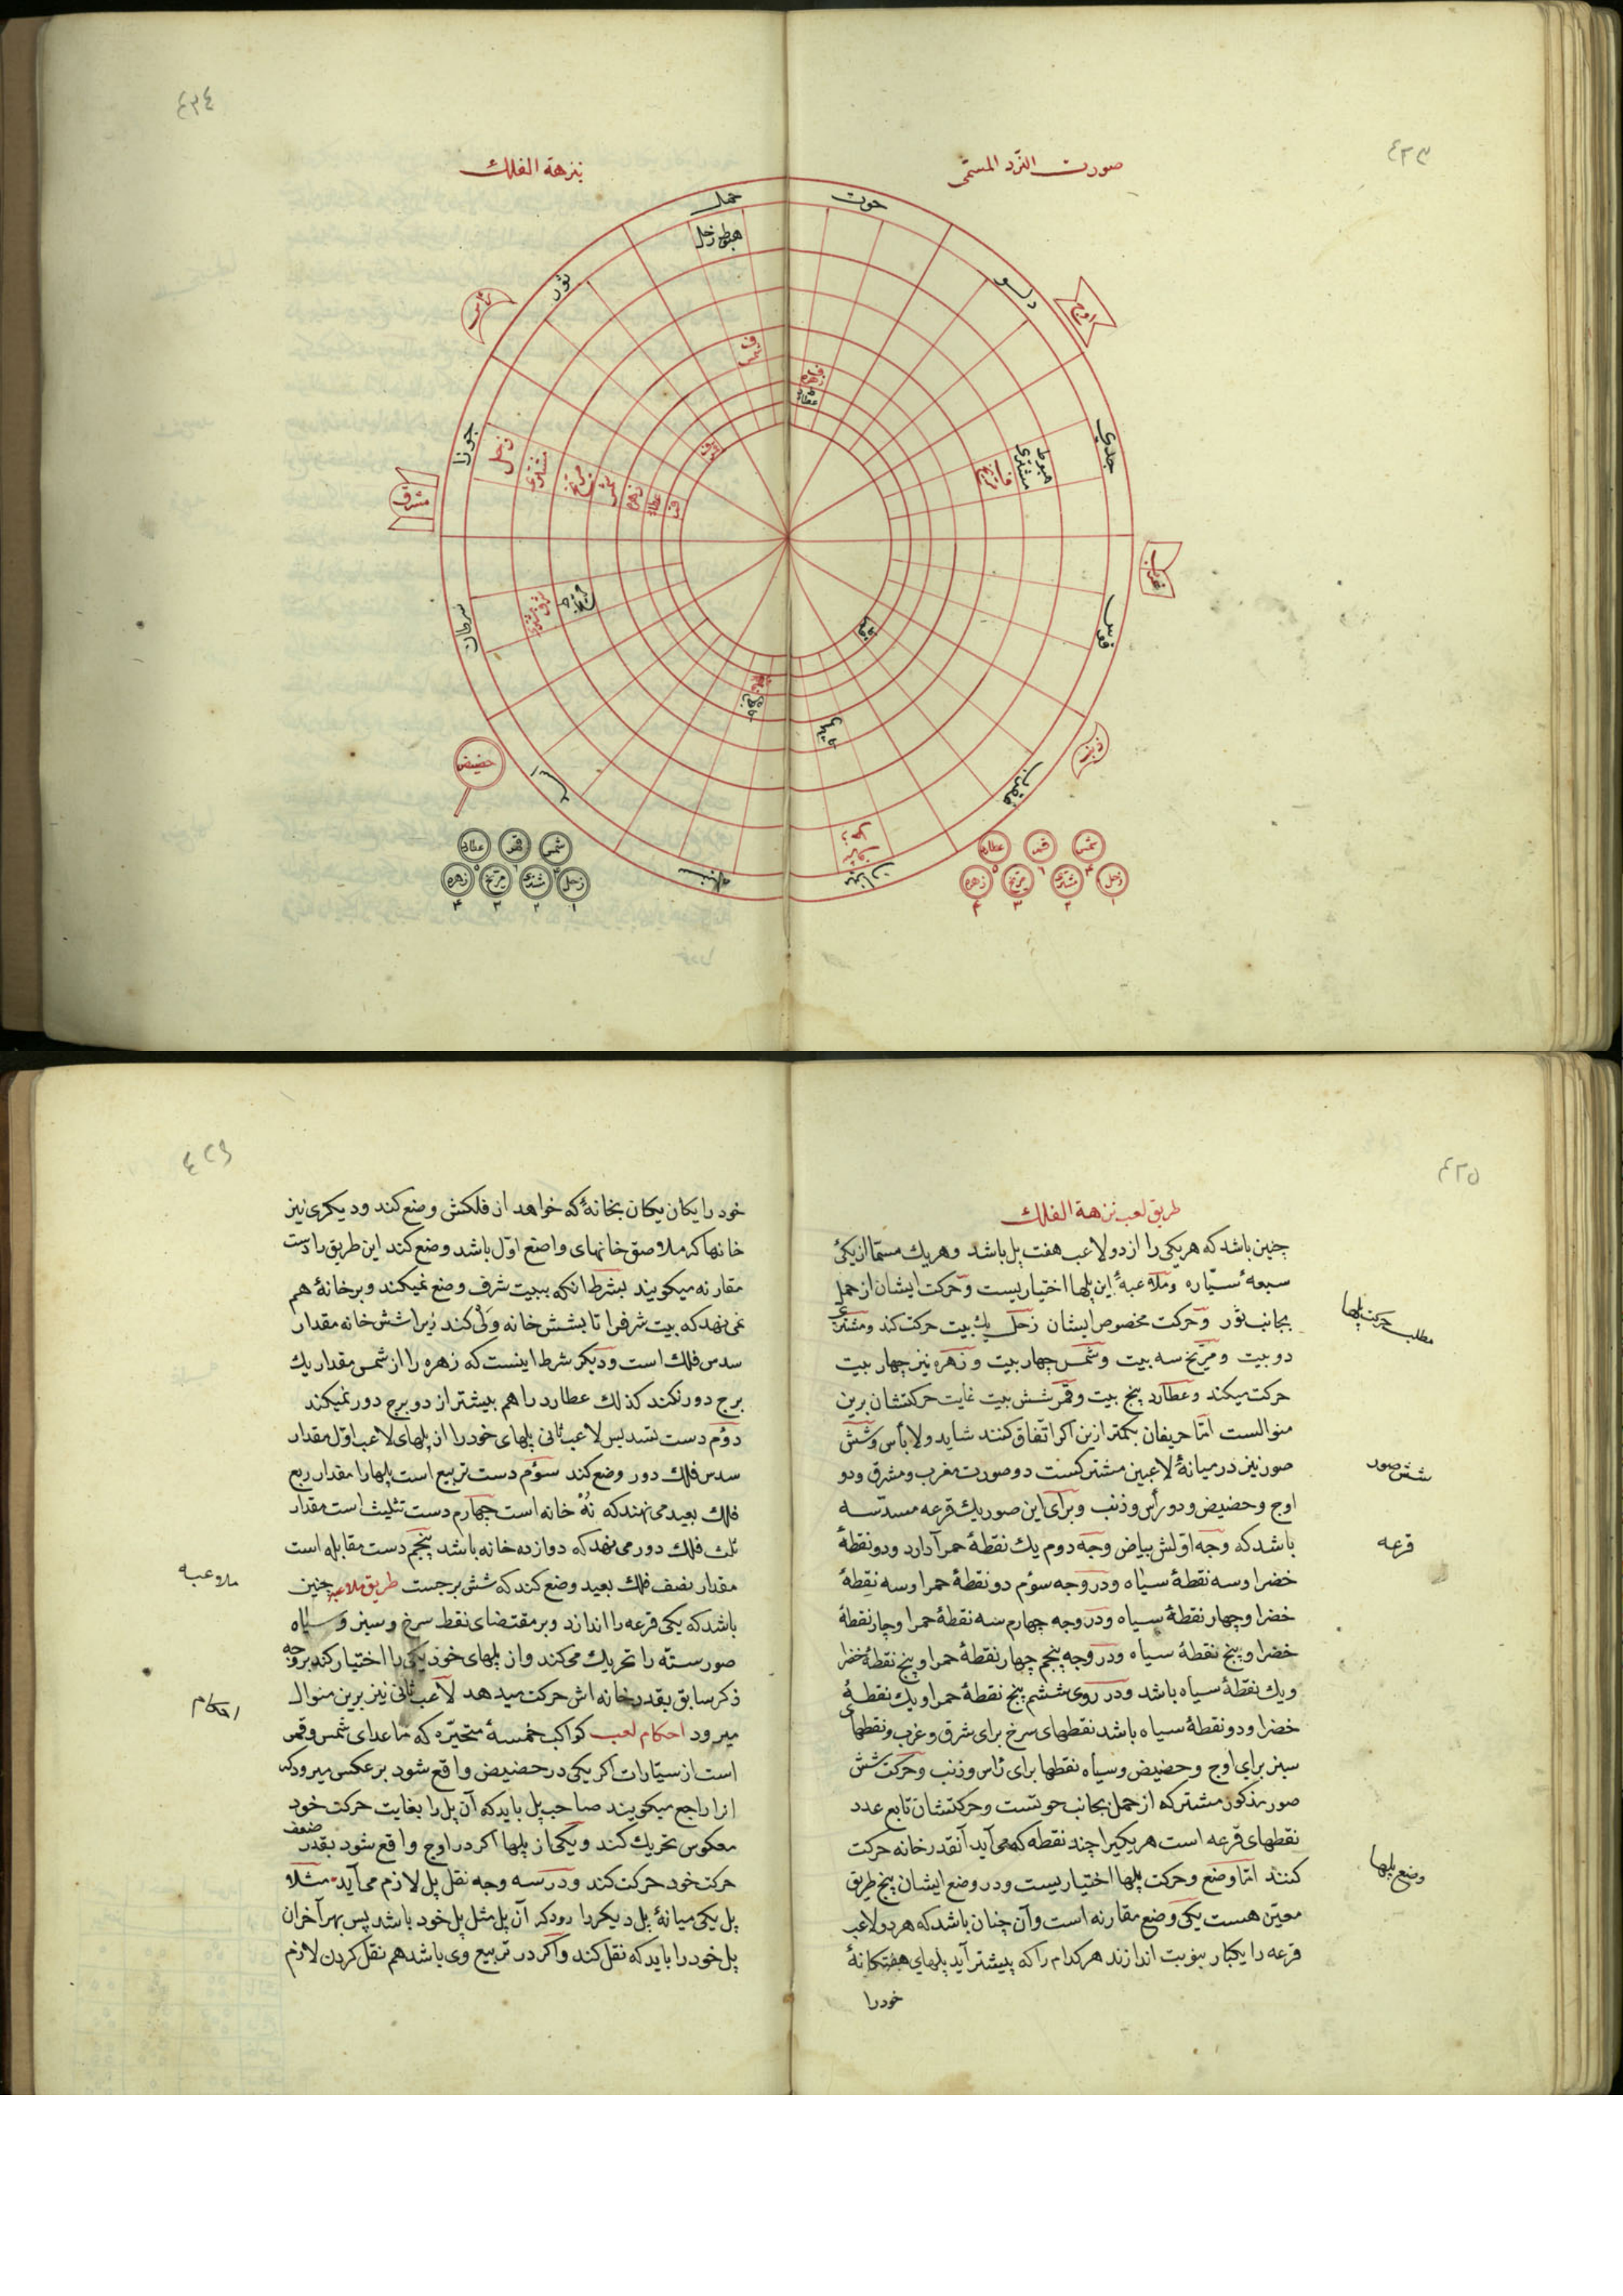 ٤٢٣
صورت النرد المسمّی
٤٢٤
بنزهة الفلك
حوت
حمل
هبوط زحل
دلو
ثور
اوج
رأس
جدی
جوزا
زحل
مشتری
مریخ
شمس
زهره
عطارد
هبوط
مشتری
مشرق
مغرب
سرطان
قوس
حضیض
ذنب
عقرب
اسد
میزان
سنبله
شمس قمر عطارد
زحل مشتری مریخ زهره
١ ٢ ٣ ٤
شمس قمر عطارد
زحل مشتری مریخ زهره
١ ٢ ٣ ٤
٤٢٥
طریق لعب نزهة الفلك
چنین باشد که هر یکی را از دو لاعب هفت پل باشد وهر یك مسمّا از یکئ
سبعهٔ سیّاره وملاعبهٔ این پلها اختیاریست وحرکت ایشان از حمل
بجانب ثور وحرکت مخصوص ایشان زحل یك بیت حرکت کند ومشتری
دو بیت ومرّیخ سه بیت وشمس چهار بیت وزهره نیز چهار بیت
حرکت میکند وعطارد پنج بیت وقمر شش بیت غایت حرکتشان برین
منوالست امّا حریفان بکمتر ازین اکر اتّفاق کنند شاید ولا بأس وشش
صور نیز در میانهٔ لاعبین مشترکست دو صورت مغرب ومشرق ودو
اوج وحضیض ودو رأس وذنب وبرای این صور یك قرعه مسدّسه
باشد که وجه اوّلش بیاض وجه دوم یك نقطهٔ حمرا دارد ودو نقطهٔ
خضرا وسه نقطهٔ سیاه ودر وجه سوّم دو نقطهٔ حمرا وسه نقطهٔ
خضرا وچهار نقطهٔ سیاه ودر وجه چهارم سه نقطهٔ حمرا وچار نقطهٔ
خضرا وپنج نقطهٔ سیاه ودر وجه پنجم چهار نقطهٔ حمرا وپنج نقطهٔ خضرا
ویك نقطهٔ سیاه باشد ودر روی ششم پنج نقطهٔ حمرا ویك نقطهٔ
خضرا ودو نقطهٔ سیاه باشد نقطهای سرخ برای شرق وغرب ونقطهای
سبز برای اوج وحضیض وسیاه نقطها برای رأس وذنب وحرکت شش
صور مذکور مشترکه از حمل بجانب حوتست وحرکتشان تابع عدد
نقطهای قرعه است هر یکیرا چند نقطه که می آید آنقدر خانه حرکت
کنند امّا وضع وحرکت پلها اختیاریست ودر وضع ایشان پنج طریق
معیّن هست یکی وضع مقارنه است وآن چنان باشد که هر دو لاعب
قرعه را یکبار بنوبت اندازند هر کدام را که پیشتر آید پلهای هفتکانهٔ
خود را
مطلب حرکت پلها
شش صور
قرعه
وضع پلها
٤٢٦
خود را یکان یکان بخانهٔ که خواهد از فلکش وضع کند ودیکری نیز
خانها که ملاصق خانهای واضع اوّل باشد وضع کند این طریق را دست
مقارنه میکویند بشرط انکه ببیت شرف وضع نمیکند وبر خانهٔ هم
نمی نهد که بیت شرفرا تا بشش خانه ولی کند زیرا شش خانه مقدار
سدس فلك است ودیکر شرط اینست که زهره را از شمس مقدار یك
برج دور نکند کذلك عطارد را هم بیشتر از دو برج دور نمیکند
دوّم دست تسدیس لاعب ثانی پلهای خود را از پلهای لاعب اوّل مقدار
سدس فلك دور وضع کند سوّم دست تربیع است پلها را مقدار ربع
فلك بعید می نهند که نُهْ خانه است چهارم دست تثلیث است مقدار
ثلث فلك دور می نهد که دوازده خانه باشد پنجم دست مقابله است
مقدار نصف فلك بعید وضع کند که شش برجست طریق ملاعبه چنین
باشد که یکی قرعه را اندازد وبر مقتضای نقط سرخ وسبز وسیاه
صور ستّه را تحریك می کند واز پلهای خود یکی را اختیار کند بر وجه
ذکر سابق بقدر خانه اش حرکت میدهد لاعب ثانی نیز برین منوال
میرود احکام لعب کواکب خمسهٔ متحیّره که ماعدای شمس وقمر
است از سیّارات اکر یکی در حضیض واقع شود بر عکس میرود که
انرا راجع میکویند صاحب پل باید که آن پل را بغایت حرکت خود
معکوس تحریك کند ویکی از پلها اکر در اوج واقع شود بقدر ضعف
حرکت خود حرکت کند ودر سه وجه نقل پل لازم می آید مثلا
پل یکی میانهٔ پل دیکر را رود که آن پل مثل پل خود باشد پس بهر آخران
پل خود را باید که نقل کند واکر در تربیع وی باشد هم نقل کردن لازم
ملاعبه
احکام